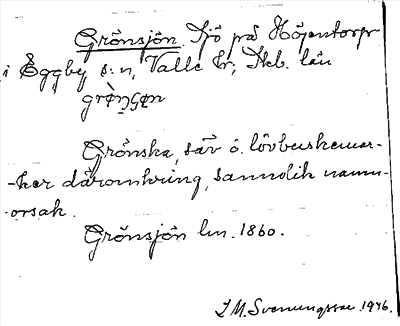 Grönsjön. Sjö på Höjentorps
i Eggby s:n, Valle hr; Skb. län
grö̀nʃøn
Grönska, säv o. lövbuskemar-
-ker däromkring, sannolik namn-
-orsak.
Grönsjön lm. 1860.
J M. Svenungsson 1946.